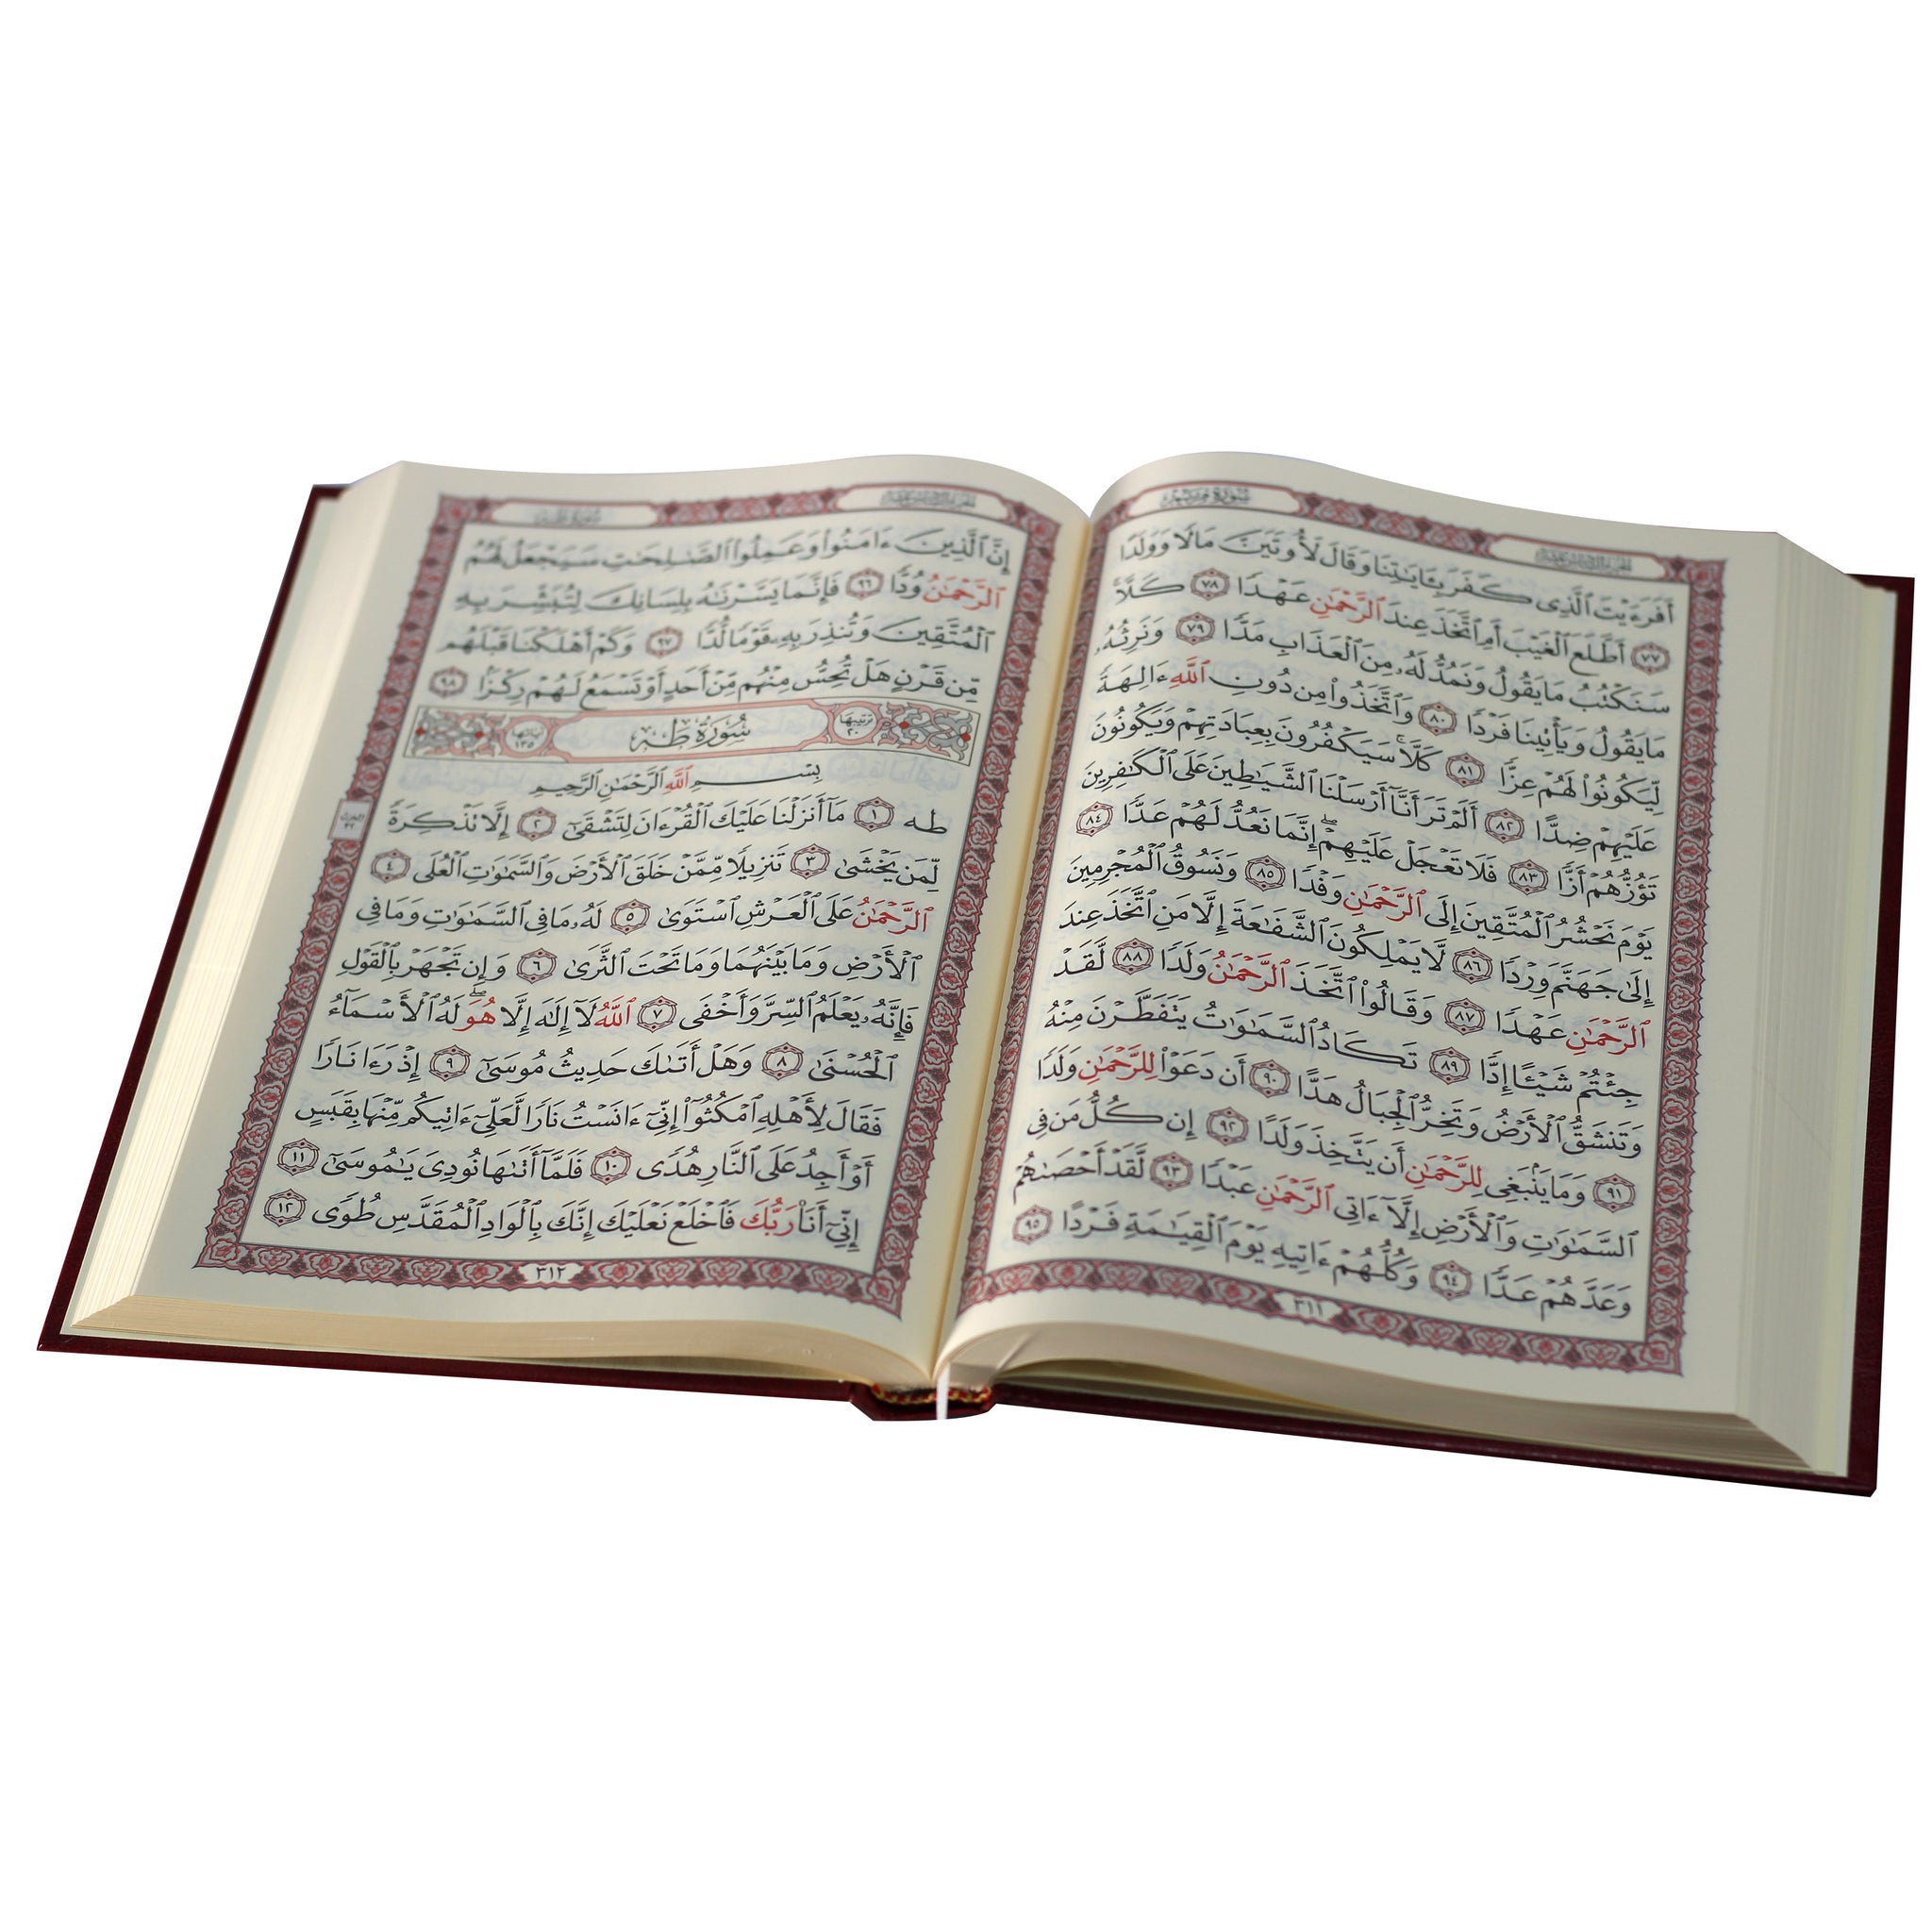 سورة مريم
أَفَرَءَيْتَ ٱلَّذِى كَفَرَ بِـَٔايَـٰتِنَا وَقَالَ لَأُوتَيَنَّ مَالًا وَوَلَدًا
٧٧ أَطَّلَعَ ٱلْغَيْبَ أَمِ ٱتَّخَذَ عِندَ ٱلرَّحْمَـٰنِ عَهْدًا ٧٨ كَلَّا
سَنَكْتُبُ مَا يَقُولُ وَنَمُدُّ لَهُۥ مِنَ ٱلْعَذَابِ مَدًّا ٧٩ وَنَرِثُهُۥ
مَا يَقُولُ وَيَأْتِينَا فَرْدًا ٨٠ وَٱتَّخَذُوا۟ مِن دُونِ ٱللَّهِ ءَالِهَةً
لِّيَكُونُوا۟ لَهُمْ عِزًّا ٨١ كَلَّا ۚ سَيَكْفُرُونَ بِعِبَادَتِهِمْ وَيَكُونُونَ
عَلَيْهِمْ ضِدًّا ٨٢ أَلَمْ تَرَ أَنَّآ أَرْسَلْنَا ٱلشَّيَـٰطِينَ عَلَى ٱلْكَـٰفِرِينَ
تَؤُزُّهُمْ أَزًّا ٨٣ فَلَا تَعْجَلْ عَلَيْهِمْ ۖ إِنَّمَا نَعُدُّ لَهُمْ عَدًّا ٨٤
يَوْمَ نَحْشُرُ ٱلْمُتَّقِينَ إِلَى ٱلرَّحْمَـٰنِ وَفْدًا ٨٥ وَنَسُوقُ ٱلْمُجْرِمِينَ
إِلَىٰ جَهَنَّمَ وِرْدًا ٨٦ لَّا يَمْلِكُونَ ٱلشَّفَـٰعَةَ إِلَّا مَنِ ٱتَّخَذَ عِندَ
ٱلرَّحْمَـٰنِ عَهْدًا ٨٧ وَقَالُوا۟ ٱتَّخَذَ ٱلرَّحْمَـٰنُ وَلَدًا ٨٨ لَّقَدْ
جِئْتُمْ شَيْـًٔا إِدًّا ٨٩ تَكَادُ ٱلسَّمَـٰوَٰتُ يَتَفَطَّرْنَ مِنْهُ
وَتَنشَقُّ ٱلْأَرْضُ وَتَخِرُّ ٱلْجِبَالُ هَدًّا ٩٠ أَن دَعَوْا۟ لِلرَّحْمَـٰنِ وَلَدًا
٩١ وَمَا يَنۢبَغِى لِلرَّحْمَـٰنِ أَن يَتَّخِذَ وَلَدًا ٩٢ إِن كُلُّ مَن فِى
ٱلسَّمَـٰوَٰتِ وَٱلْأَرْضِ إِلَّآ ءَاتِى ٱلرَّحْمَـٰنِ عَبْدًا ٩٣ لَّقَدْ أَحْصَىٰهُمْ
وَعَدَّهُمْ عَدًّا ٩٤ وَكُلُّهُمْ ءَاتِيهِ يَوْمَ ٱلْقِيَـٰمَةِ فَرْدًا ٩٥
٣١١
إِنَّ ٱلَّذِينَ ءَامَنُوا۟ وَعَمِلُوا۟ ٱلصَّـٰلِحَـٰتِ سَيَجْعَلُ لَهُمُ
ٱلرَّحْمَـٰنُ وُدًّا ٩٦ فَإِنَّمَا يَسَّرْنَـٰهُ بِلِسَانِكَ لِتُبَشِّرَ بِهِ
ٱلْمُتَّقِينَ وَتُنذِرَ بِهِۦ قَوْمًا لُّدًّا ٩٧ وَكَمْ أَهْلَكْنَا قَبْلَهُم
مِّن قَرْنٍ هَلْ تُحِسُّ مِنْهُم مِّنْ أَحَدٍ أَوْ تَسْمَعُ لَهُمْ رِكْزًۢا ٩٨
ترتيبها ٢٠ سُورَةُ طه آياتها ١٣٥
بِسْمِ ٱللَّهِ ٱلرَّحْمَـٰنِ ٱلرَّحِيمِ
طه ١ مَآ أَنزَلْنَا عَلَيْكَ ٱلْقُرْءَانَ لِتَشْقَىٰٓ ٢ إِلَّا تَذْكِرَةً
لِّمَن يَخْشَىٰ ٣ تَنزِيلًا مِّمَّنْ خَلَقَ ٱلْأَرْضَ وَٱلسَّمَـٰوَٰتِ ٱلْعُلَى ٤
ٱلرَّحْمَـٰنُ عَلَى ٱلْعَرْشِ ٱسْتَوَىٰ ٥ لَهُۥ مَا فِى ٱلسَّمَـٰوَٰتِ وَمَا فِى
ٱلْأَرْضِ وَمَا بَيْنَهُمَا وَمَا تَحْتَ ٱلثَّرَىٰ ٦ وَإِن تَجْهَرْ بِٱلْقَوْلِ
فَإِنَّهُۥ يَعْلَمُ ٱلسِّرَّ وَأَخْفَى ٧ ٱللَّهُ لَآ إِلَـٰهَ إِلَّا هُوَ ۖ لَهُ ٱلْأَسْمَآءُ
ٱلْحُسْنَىٰ ٨ وَهَلْ أَتَىٰكَ حَدِيثُ مُوسَىٰٓ ٩ إِذْ رَءَا نَارًا
فَقَالَ لِأَهْلِهِ ٱمْكُثُوٓا۟ إِنِّىٓ ءَانَسْتُ نَارًا لَّعَلِّىٓ ءَاتِيكُم مِّنْهَا بِقَبَسٍ
أَوْ أَجِدُ عَلَى ٱلنَّارِ هُدًى ١٠ فَلَمَّآ أَتَىٰهَا نُودِىَ يَـٰمُوسَىٰٓ ١١
إِنِّىٓ أَنَا۠ رَبُّكَ فَٱخْلَعْ نَعْلَيْكَ إِنَّكَ بِٱلْوَادِ ٱلْمُقَدَّسِ طُوًى ١٢
٣١٢